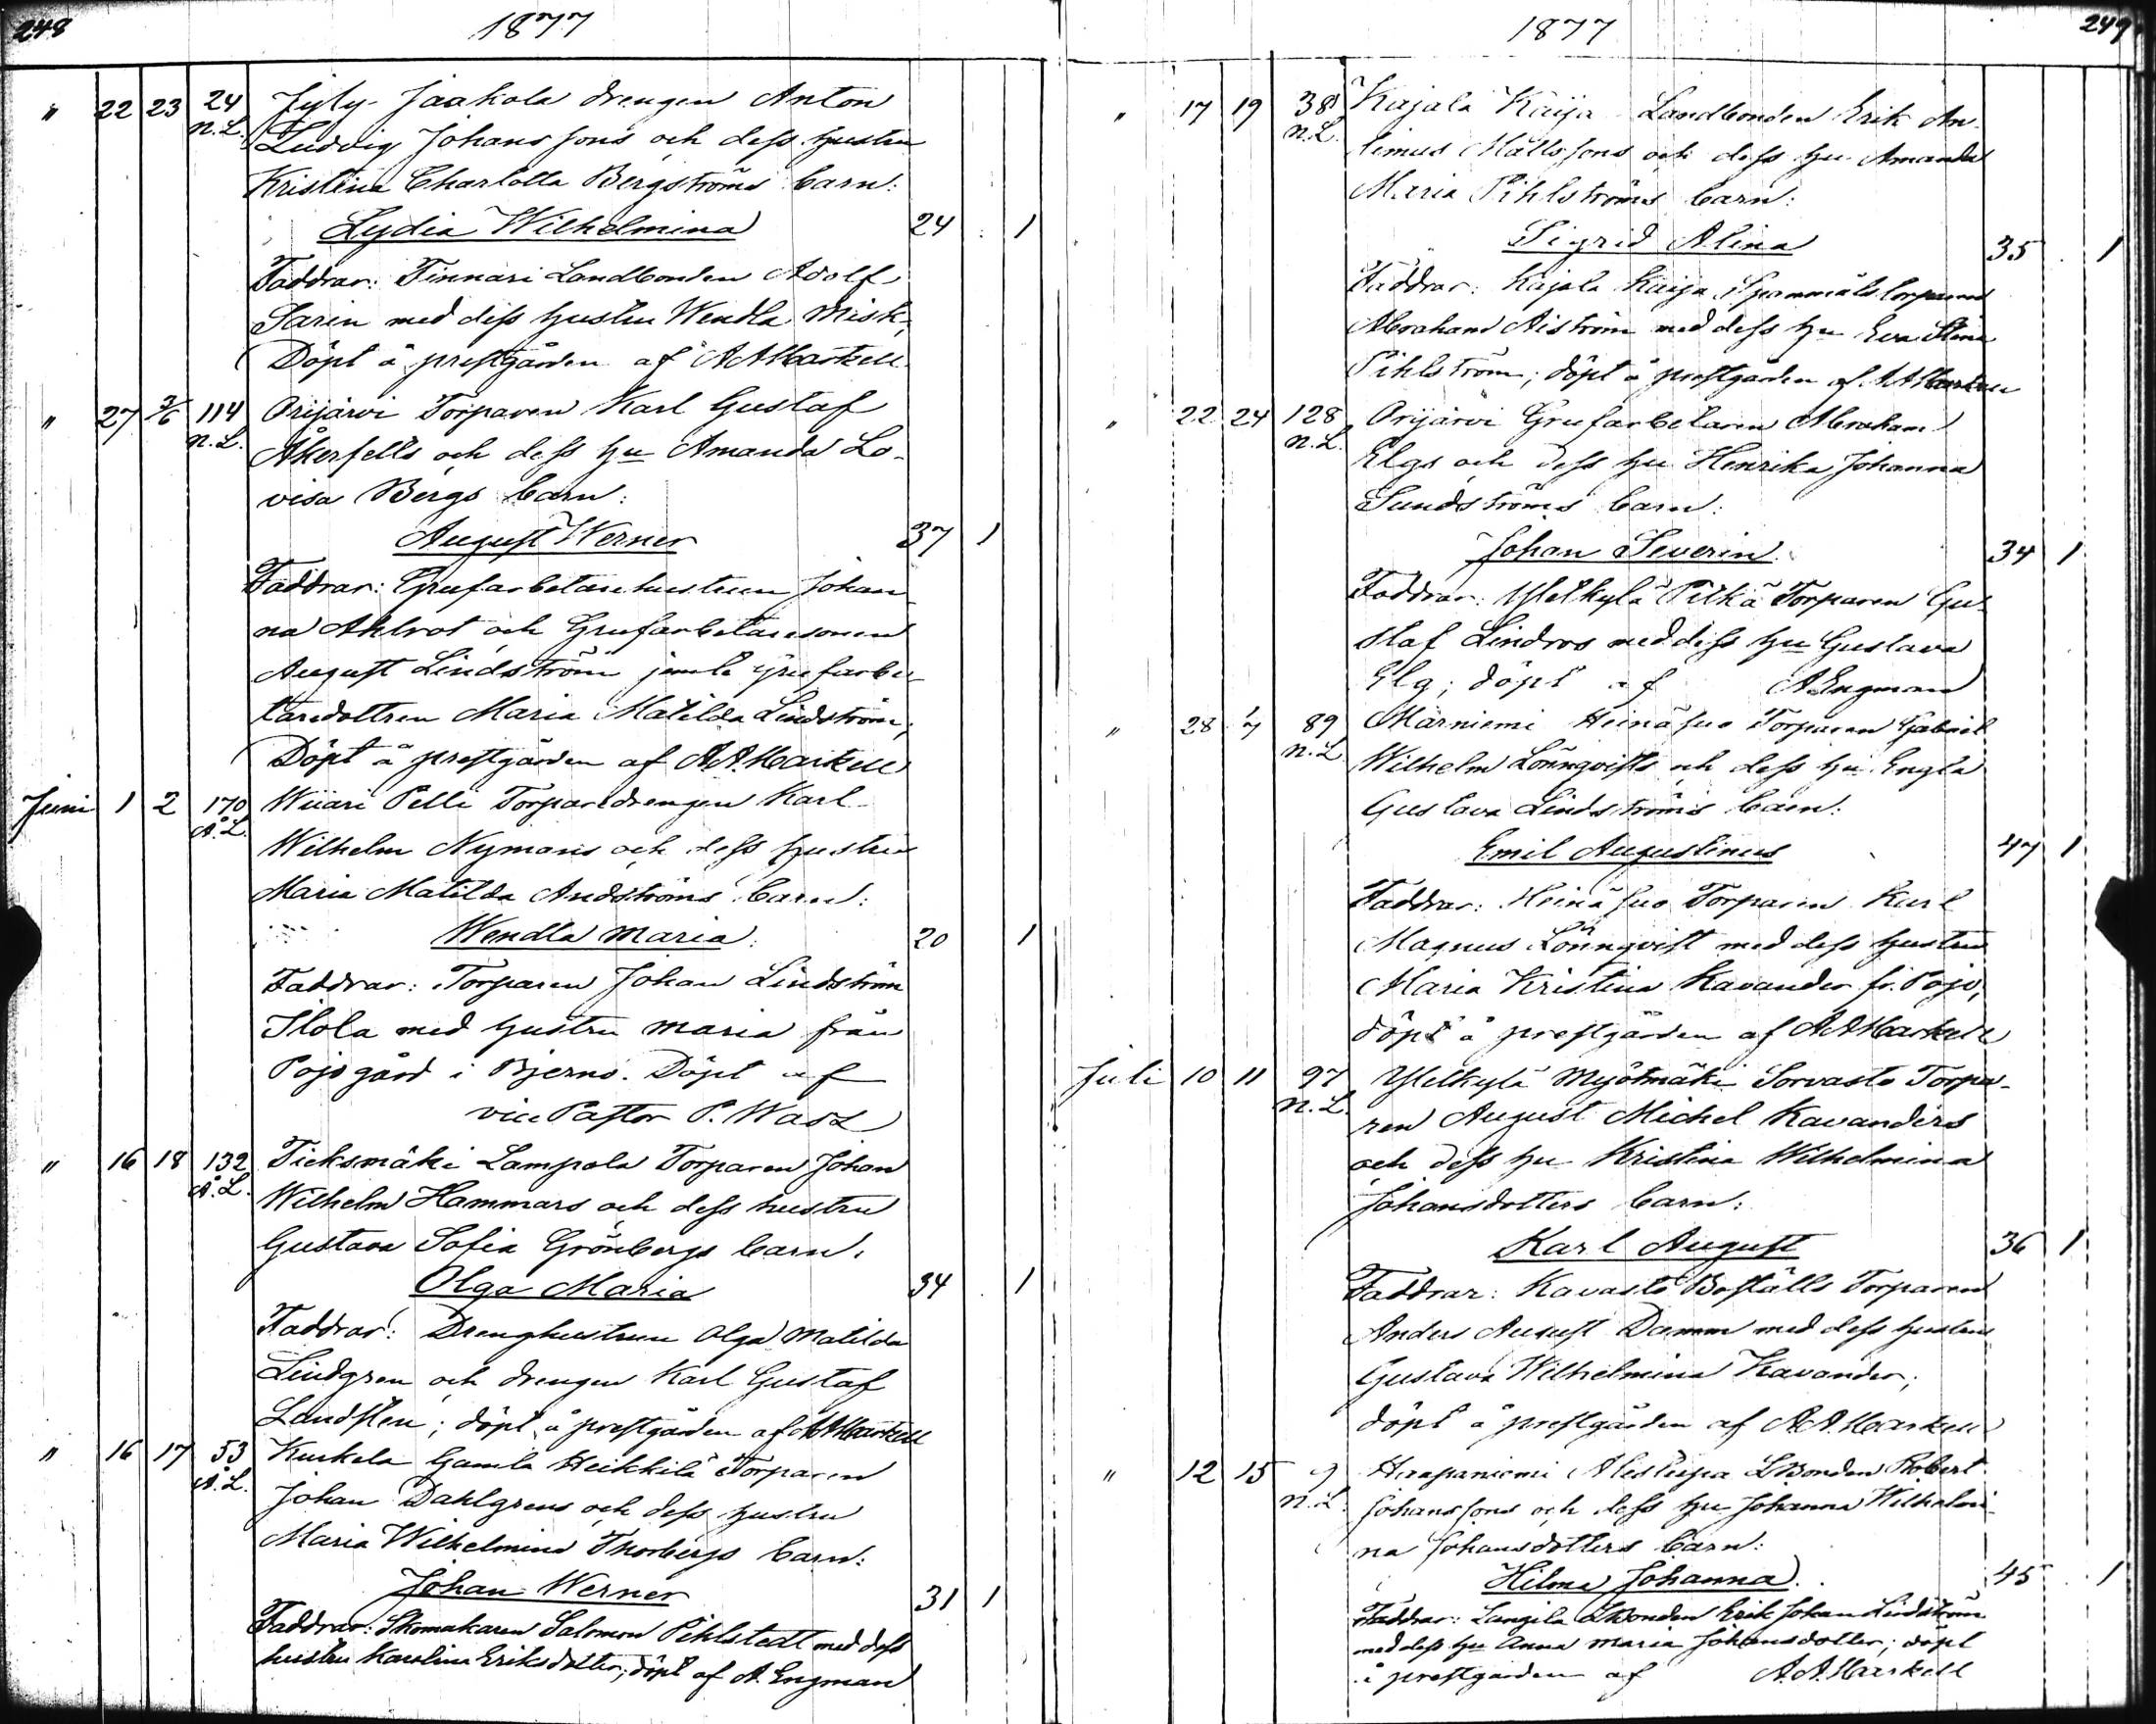 248 1877
" 22 23 24 Jyly-Jaakola drengen Anton
n.L. Ludvig Johanssons och dess hustru
Kristina Charlotta Bergströms barn:
Lydia Wilhelmina 24 1
Faddrar: Finnari Landbonden Adolf
Sarin med dess hustru Wendla Misk,
Döpt å prestgården af A A Markell
" 27 3/6 114 Orijärvi Torparen Karl Gustaf
n.L. Åkerfelts och dess hu Amanda Lo-
visa Bergs barn:
August Werner 37 1
Faddrar: Grufarbetare hustrun Johan
na Ahlrot och Grufarbetaresonen
August Lindström jemte Grufarbe-
taredottren Maria Matilda Lindström;
Döpt å prestgården af A.A. Markell
Juni 1 2 170 Wiiari Pelli Torparedrengen Karl
Å.L. Wilhelm Nymans och dess hustru
Maria Matilda Andströms barn:
Wendla Maria 20 1
Faddrar: Torparen Johan Lindström
Ilola med hustru Maria från
Pojo gård i Bjerno. Döpt af
vice Pastor P. Wasz
" 16 18 132 Tieksmäki Lampola Torparen Johan
Å.L. Wilhelm Hammars och dess hustru
Gustava Sofia Grönbergs barn:
Olga Maria 34 1
Faddrar: Drenghustrun Olga Matilda
Lindgren och drengen Karl Gustaf
Landsten; döpt å prestgården af A A Markell
" 16 17 53 Kurkela Gamla Heikkilä Torparen
Å.L. Johan Dahlgrens och dess hustru
Maria Wilhelmina Thorbergs barn:
Johan Werner 31 1
Faddrar: Skomakaren Salomon Pihlstedt med dess
hustru Karolina Eriksdotter; döpt af A. Engman
1877 249
" 17 19 38 Kajala Kaija Landbonden Erik An-
n.L. timus Mattssons och dess hu Amanda
Maria Pihlströms barn:
Sigrid Alina 35 1
Faddrar: Kajala Kaija Spannmåls torparen
Abraham Aiström med dess hu Eva Stina
Pihlström; döpt å prestgården af A A Markell
" 22 24 128 Orijärvi Grufarbetaren Abraham
n.L. Elgs och dess hu Henrika Johanna
Sundströms barn:
Johan Severin 34 1
Faddrar: Yletkylä Pitkä Torparen Gu-
staf Lindros med dess hu Gustava
Elg; döpt af A Engman
" 28 1/7 89 Märniemi Heinäsuo Torparen Gabriel
n.L. Wilhelm Lönnqvists och dess hu Engla
Gustava Lindströms barn:
Emil Augustinus 47 1
Faddrar: Heinäsuo Torparen Karl
Magnus Lönnqvist med dess hustru
Maria Kristina Kavander fr. Pojo,
döpt å prestgården af A A Markell
Juli 10 11 97 Yletkylä Myötmäki Sorvasto Torpa-
n.L. ren August Michel Kavanders
och dess hu Kristina Wilhelmina
Johansdotters barn:
Karl August 36 1
Faddrar: Kavasto Boställs Torparen
Anders August Damm med dess hustru
Gustava Wilhelmina Kavander;
döpt å prestgården af A.A. Markell
" 12 15 9 Haapaniemi Alestupa LBonden Robert
n.L. Johanssons och dess hu Johanna Wilhelmi-
na Johansdotters barn:
Hilma Johanna 45 1
Faddrar: Langila LBonden Erik Johan Lindström
med dess hu Anna Maria Johansdotter; döpt
å prestgården af A.A. Markell